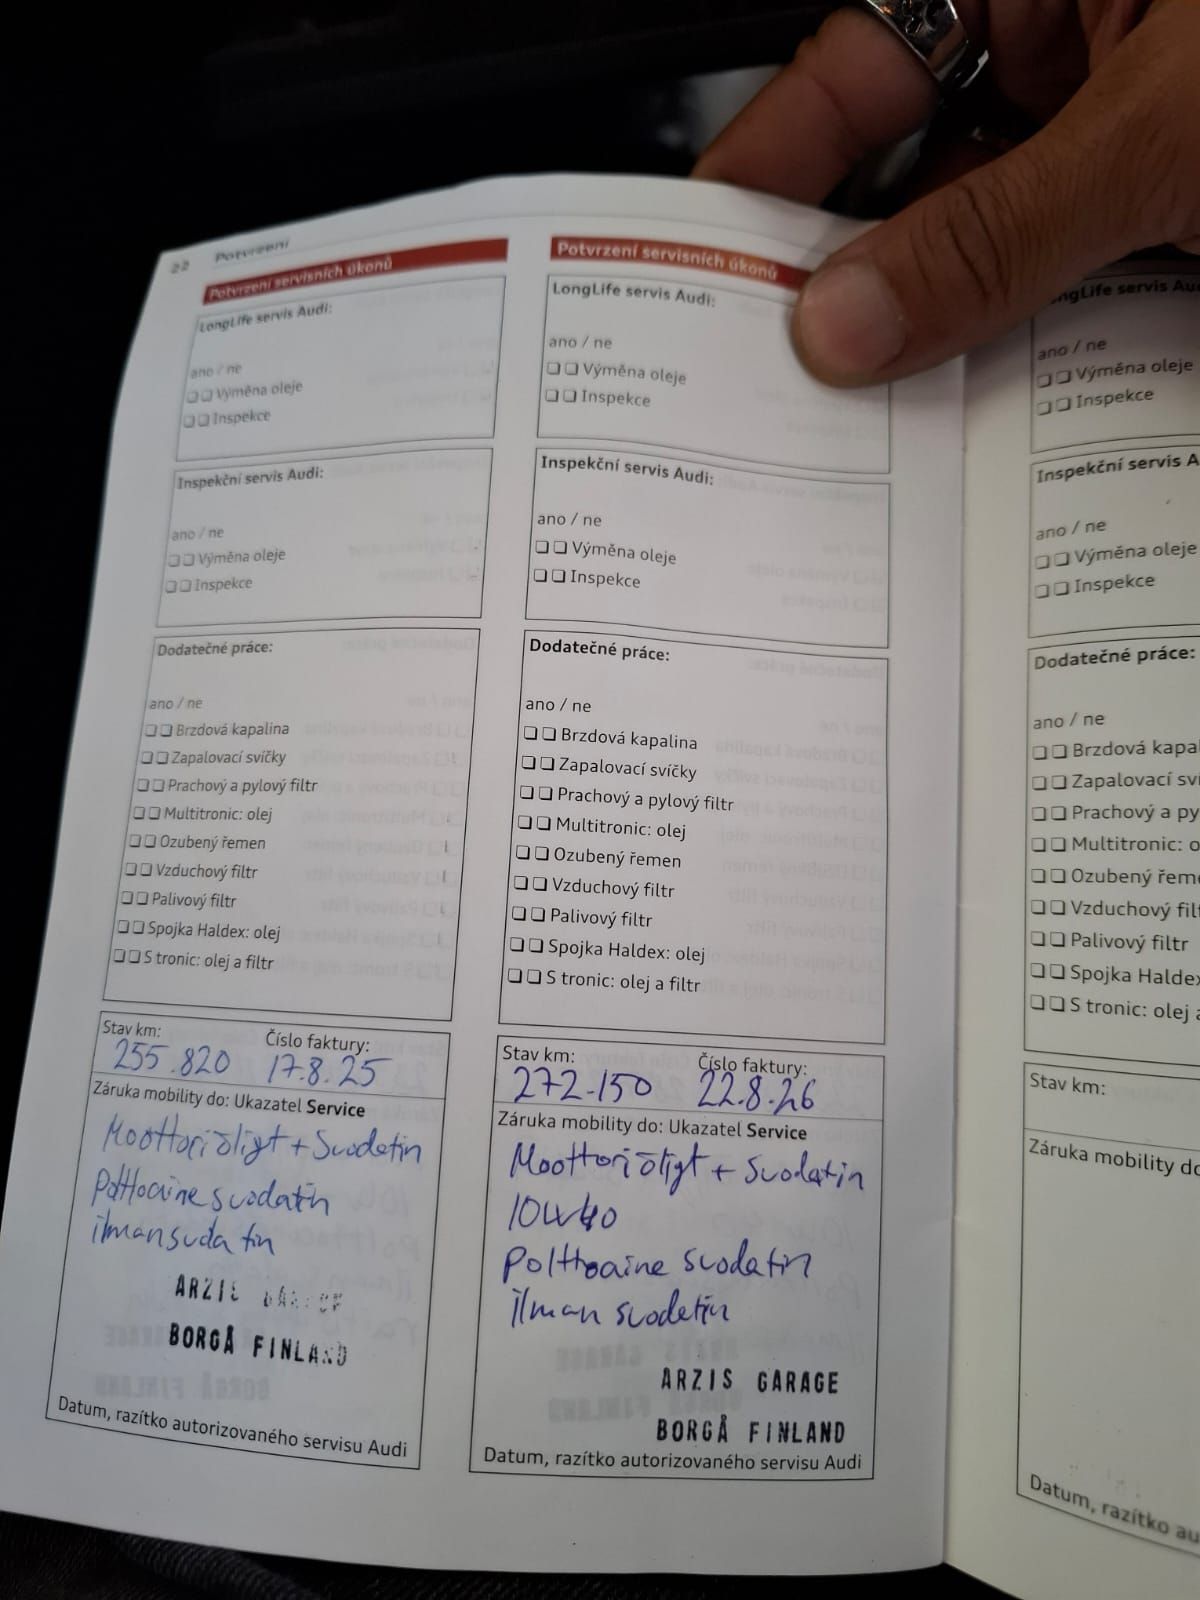 22 Potvrzení
Potvrzení servisních úkonů
LongLife servis Audi:
ano / ne
Výměna oleje
Inspekce
Inspekční servis Audi:
ano / ne
Výměna oleje
Inspekce
Dodatečné práce:
ano / ne
Brzdová kapalina
Zapalovací svíčky
Prachový a pylový filtr
Multitronic: olej
Ozubený řemen
Vzduchový filtr
Palivový filtr
Spojka Haldex: olej
S tronic: olej a filtr
Stav km: Číslo faktury:
255.820 17.8.25
Záruka mobility do: Ukazatel Service
Moottoriöljyt + Suodatin
Polttoaine suodatin
ilmansuda tin
ARZIS GARAGE
BORGÅ FINLAND
Datum, razítko autorizovaného servisu Audi
Potvrzení servisních úkonů
LongLife servis Audi:
ano / ne
Výměna oleje
Inspekce
Inspekční servis Audi:
ano / ne
Výměna oleje
Inspekce
Dodatečné práce:
ano / ne
Brzdová kapalina
Zapalovací svíčky
Prachový a pylový filtr
Multitronic: olej
Ozubený řemen
Vzduchový filtr
Palivový filtr
Spojka Haldex: olej
S tronic: olej a filtr
Stav km: Číslo faktury:
272.150 22.8.26
Záruka mobility do: Ukazatel Service
Moottoriöljyt + Suodatin
10W40
Polttoaine suodatin
ilman suodatin
ARZIS GARAGE
BORGÅ FINLAND
Datum, razítko autorizovaného servisu Audi
ngLife servis Au
ano / ne
Výměna oleje
Inspekce
Inspekční servis A
ano / ne
Výměna oleje
Inspekce
Dodatečné práce:
ano / ne
Brzdová kapal
Zapalovací sví
Prachový a py
Multitronic: o
Ozubený řeme
Vzduchový filt
Palivový filtr
Spojka Haldex
S tronic: olej a
Stav km:
Záruka mobility do
Datum, razítko au